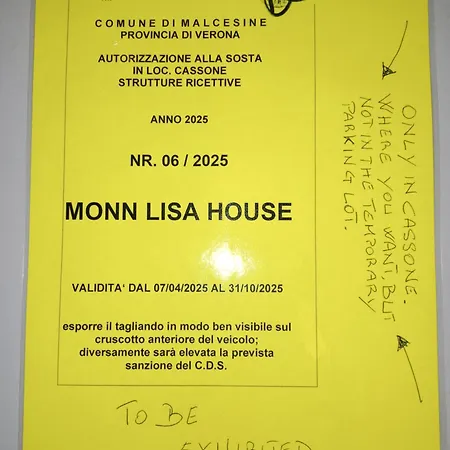 COMUNE DI MALCESINE
PROVINCIA DI VERONA
AUTORIZZAZIONE ALLA SOSTA
IN LOC. CASSONE
STRUTTURE RICETTIVE
ANNO 2025
NR. 06 / 2025
MONN LISA HOUSE
VALIDITA' DAL 07/04/2025 AL 31/10/2025
esporre il tagliando in modo ben visibile sul
cruscotto anteriore del veicolo;
diversamente sarà elevata la prevista
sanzione del C.D.S.
ONLY IN CASSONE.
WHERE YOU WANT, BUT
NOT IN THE TEMPORARY
PARKING LOT.
TO BE
EXHIBITED